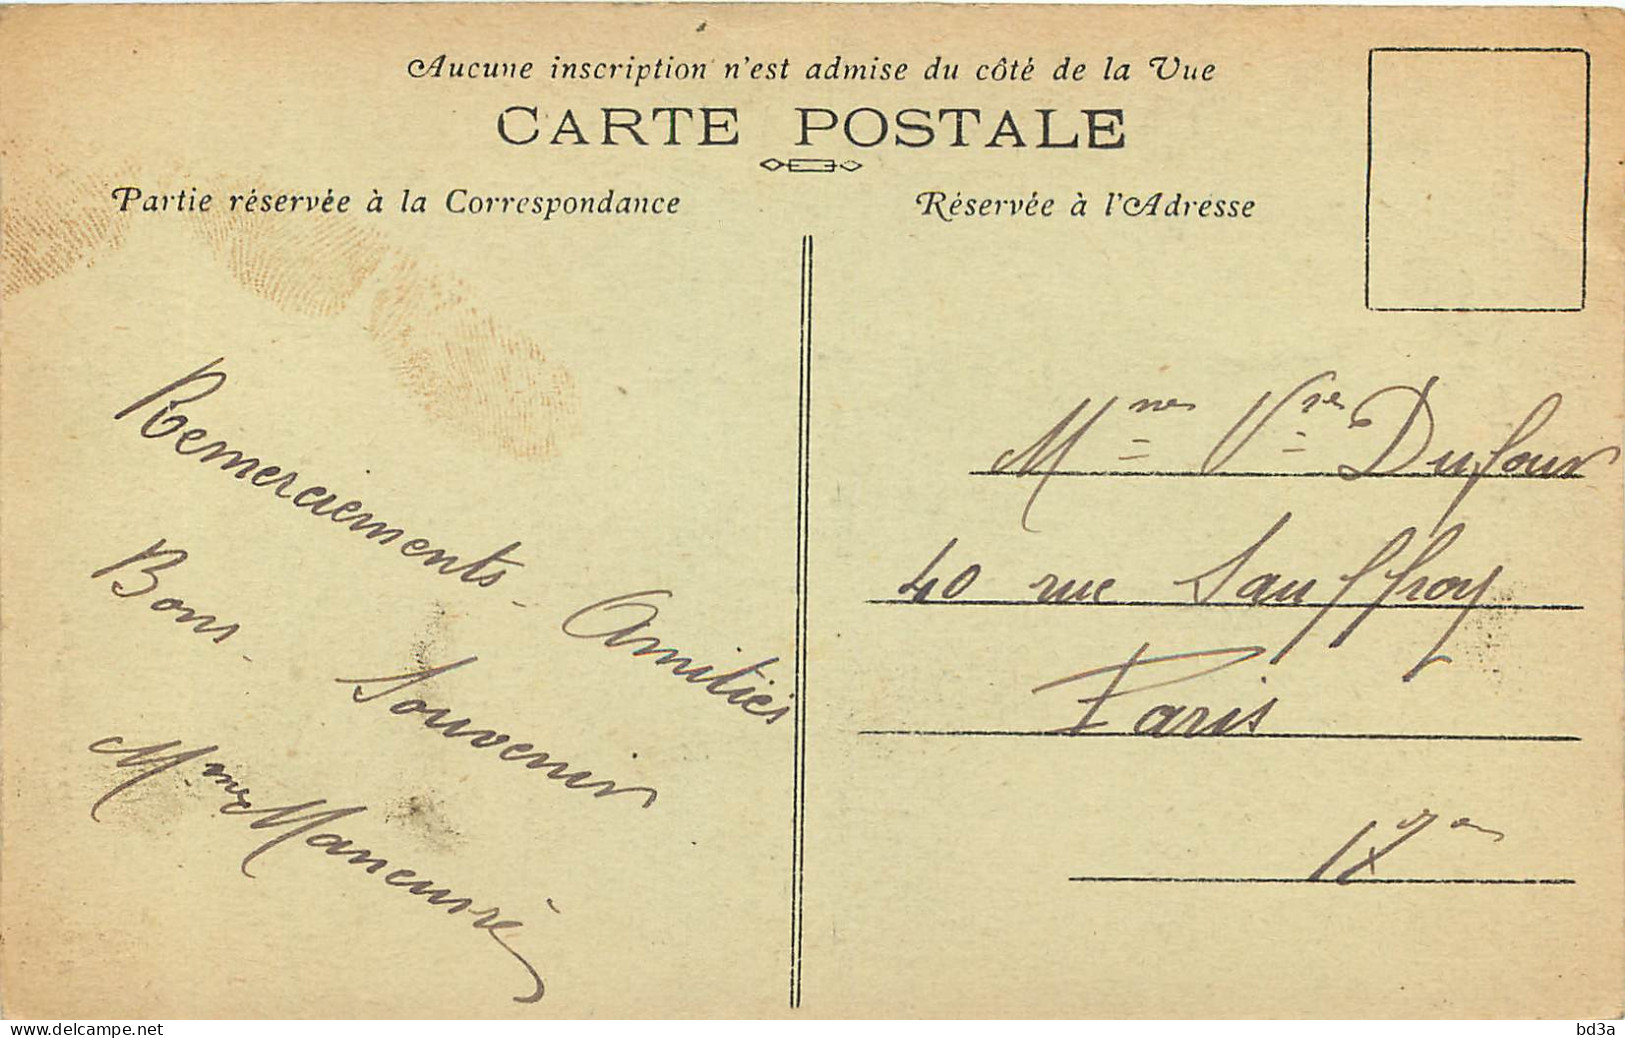 Aucune inscription n'est admise du côté de la Vue
CARTE POSTALE
Partie réservée à la Correspondance
Réservée à l'Adresse
Remerciements - Amitiés
Bons - Souvenir
Mme
Mmes Vves Dufour
40 rue Sauffroy
Paris
17em
www.delcampe.net
bd3a